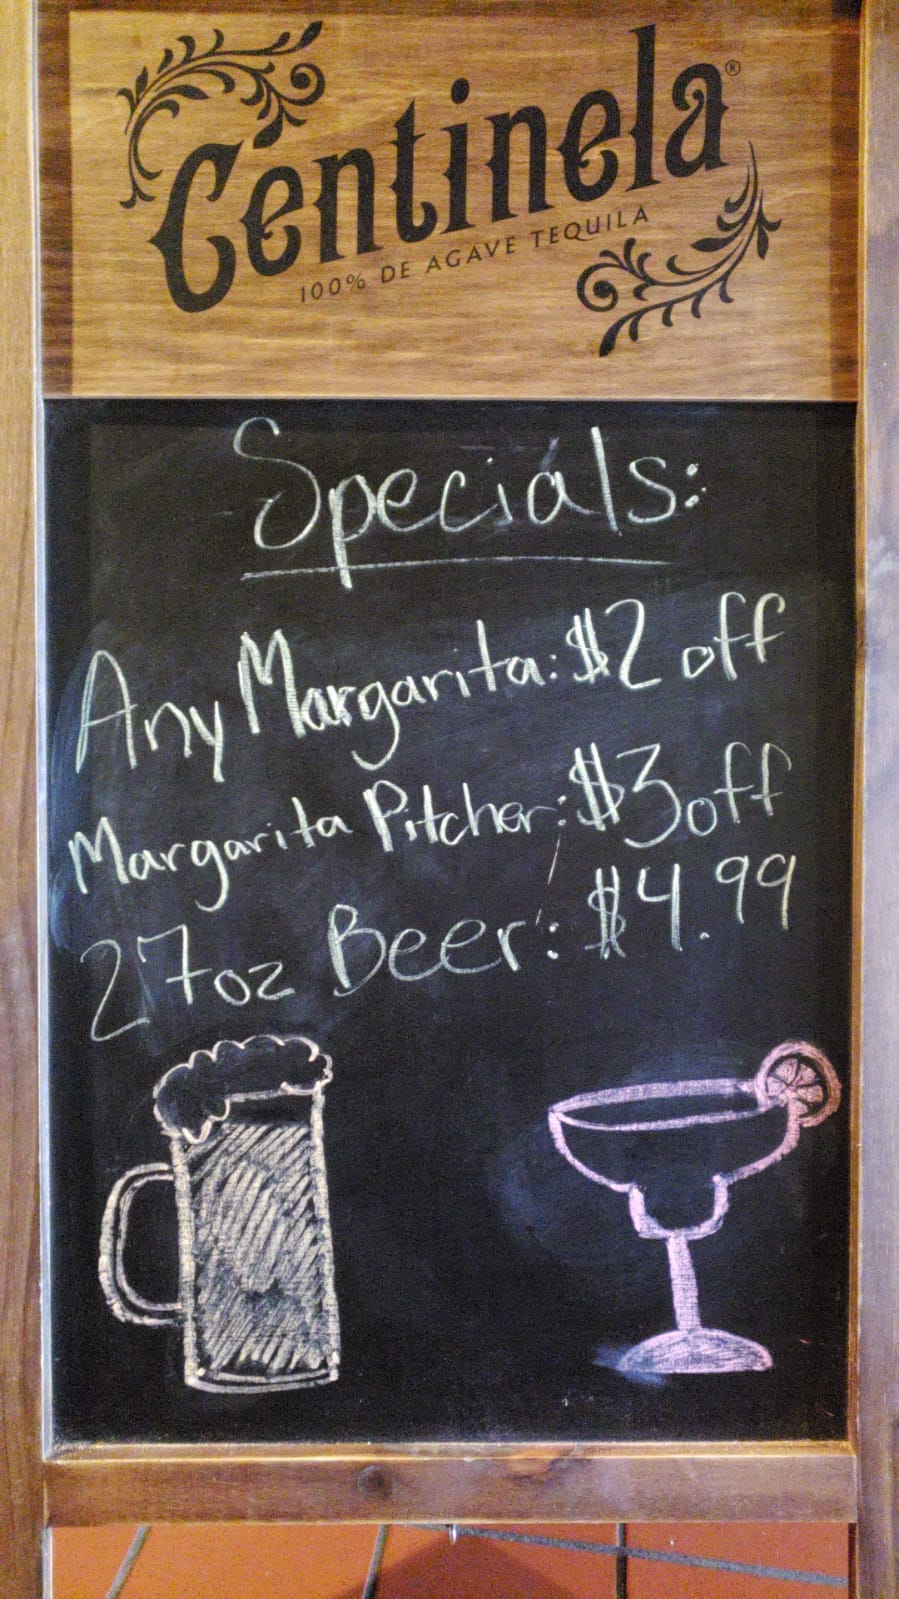 Centinela®
100% DE AGAVE TEQUILA
Specials:
Any Margarita: $2 off
Margarita Pitcher: $3 off
27oz Beer: $4.99